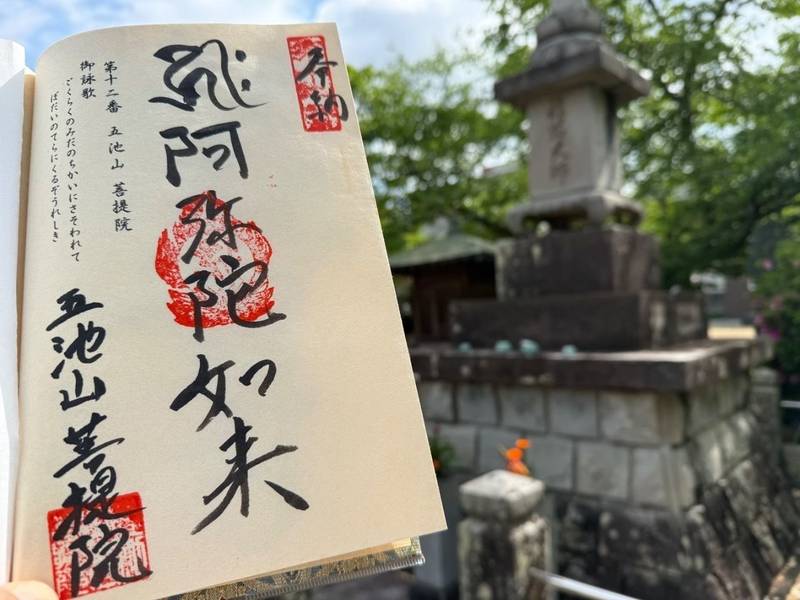 奉納
阿弥陀如来
第十二番 五池山 菩提院
御詠歌
ごくらくのみだのちかいにさそわれて
ぼだいのてらにくるぞうれしき
五池山
菩提院